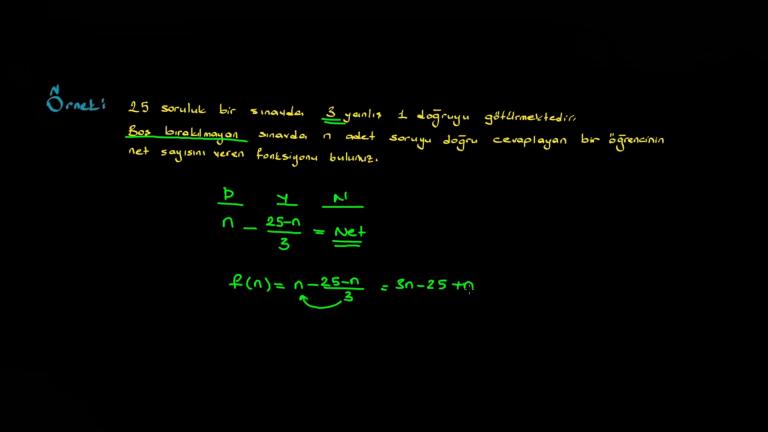 N
Örnek: 25 soruluk bir sınavda 3 yanlış 1 doğruyu götürmektedir.
Boş bırakılmayan sınavda n adet soruyu doğru cevaplayan bir öğrencinin
net sayısını veren fonksiyonu bulunuz.
D Y N
n - (25-n)/3 = Net
f(n) = n - (25-n)/3 = 3n-25+n